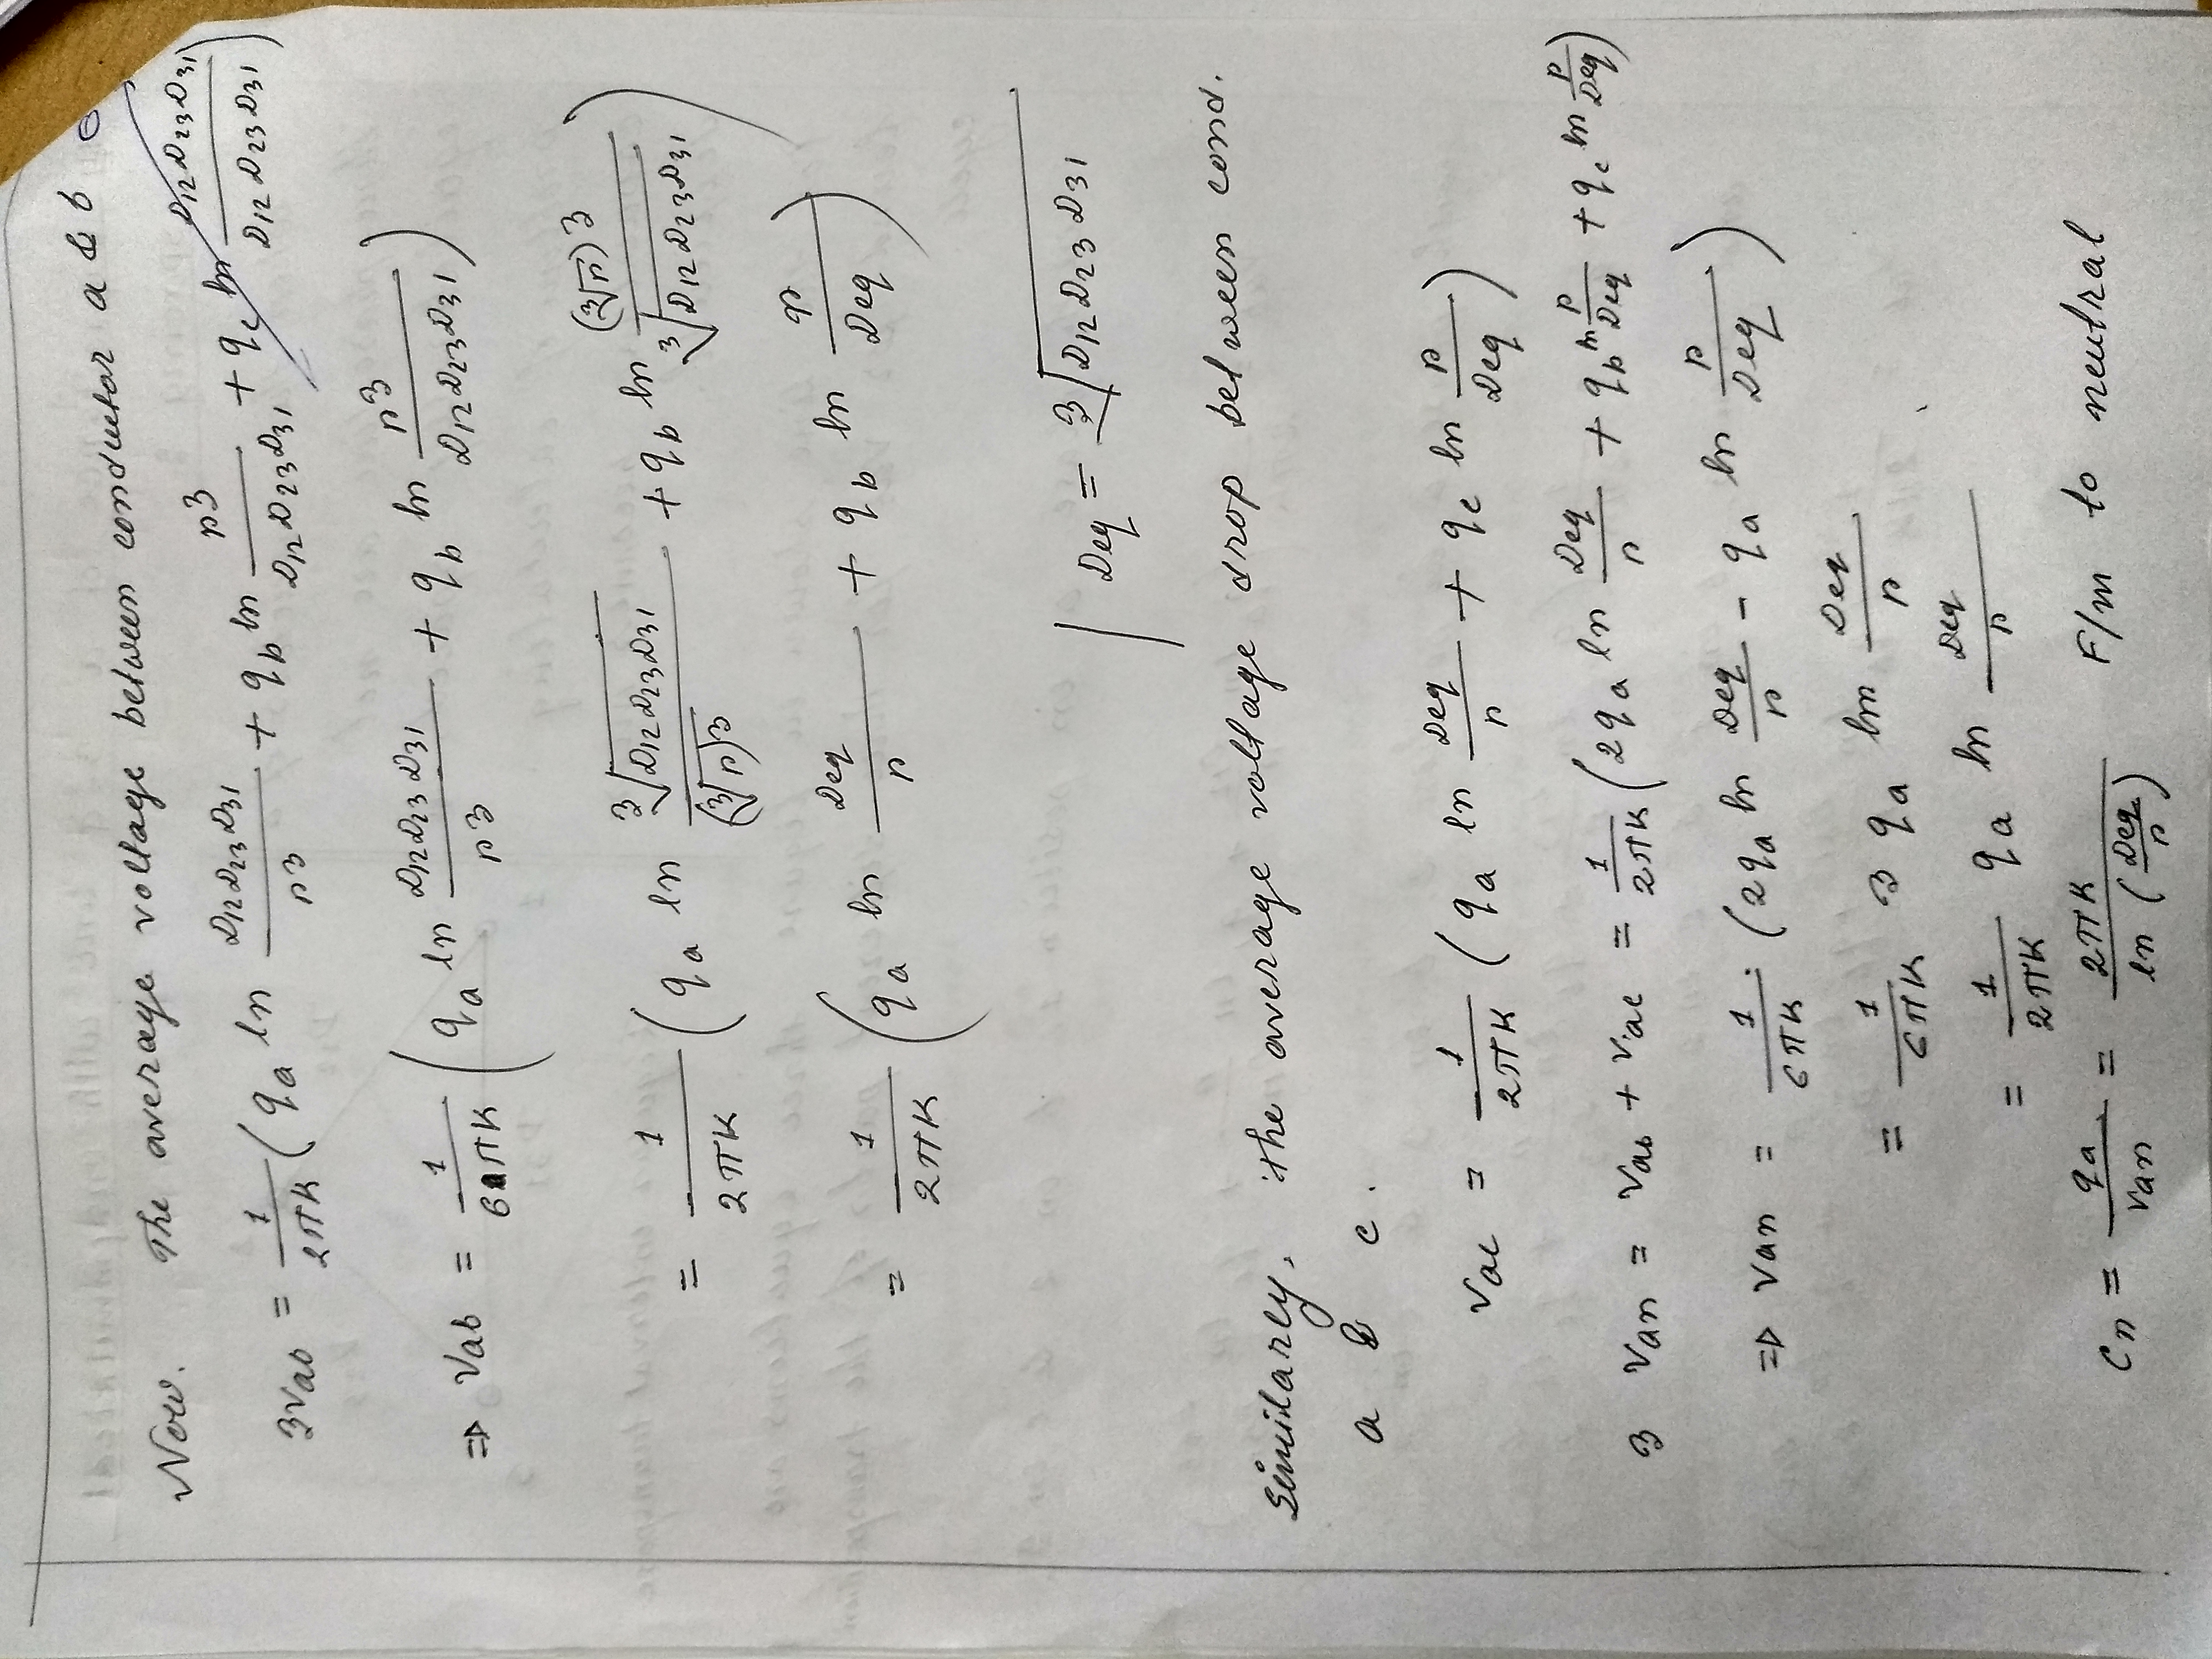 Now. The average voltage between conductor a & b
3Vab = 1/2πK (qa ln D12D23D31/r3 + qb ln r3/D12D23D31 + qc ln D12D23D31/D12D23D31)
⇒ Vab = 1/6πK (qa ln D12D23D31/r3 + qb ln r3/D12D23D31)
= 1/2πK (qa ln ∛D12D23D31/(∛r)3 + qb ln (∛r)3/∛D12D23D31)
= 1/2πK (qa ln Deq/r + qb ln r/Deq)
Deq = ∛D12D23D31
Similarly, the average voltage drop between cond.
a & c.
Vac = 1/2πK (qa ln Deq/r + qc ln r/Deq)
3 Van = Vab + Vac = 1/2πK (2qa ln Deq/r + qb ln r/Deq + qc ln r/Deq)
⇒ Van = 1/6πK (2qa ln Deq/r - qa ln r/Deq)
= 1/6πK 3 qa ln Deq/r
= 1/2πK qa ln Deq/r
Cn = qa/Van = 2πK/ln (Deq/r) F/m to neutral